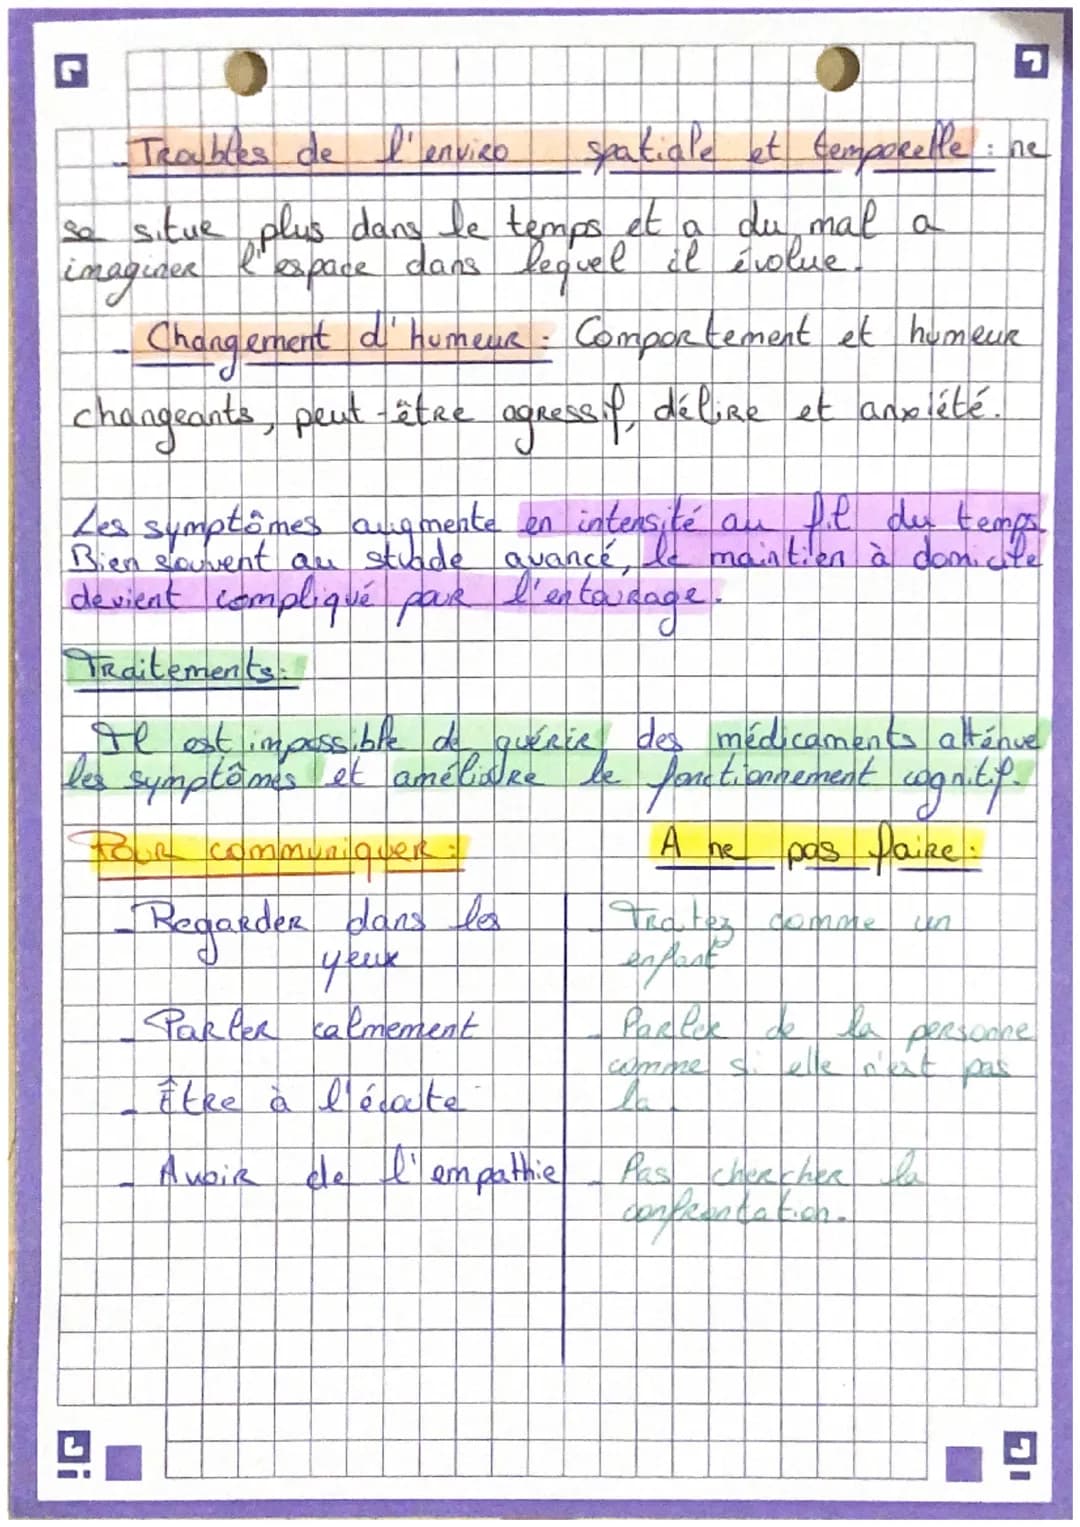 - Troubles de l'enviro spatiale et temporelle : ne
se situe plus dans le temps et a du mal a
imaginer l'espace dans lequel il évolue.
- Changement d'humeur : Comportement et humeur
changeants, peut-être agressif, délire et anxiété.
Les symptômes augmente en intensité au fil du temps
Bien souvent au stade avancé, le maintien à domicile
devient compliqué par l'entourage.
Traitements :
Il est impossible de guérir, des médicaments atténue
les symptômes et améliore le fonctionnement cognitif.
Pour communiquer :
- Regarder dans les
yeux
- Parler calmement
- Être à l'écoute
- Avoir de l'empathie
A ne pas faire :
- Traitez comme un
enfant
- Parler de la personne
comme si elle n'est pas
la.
- Pas chercher la
confrontation.